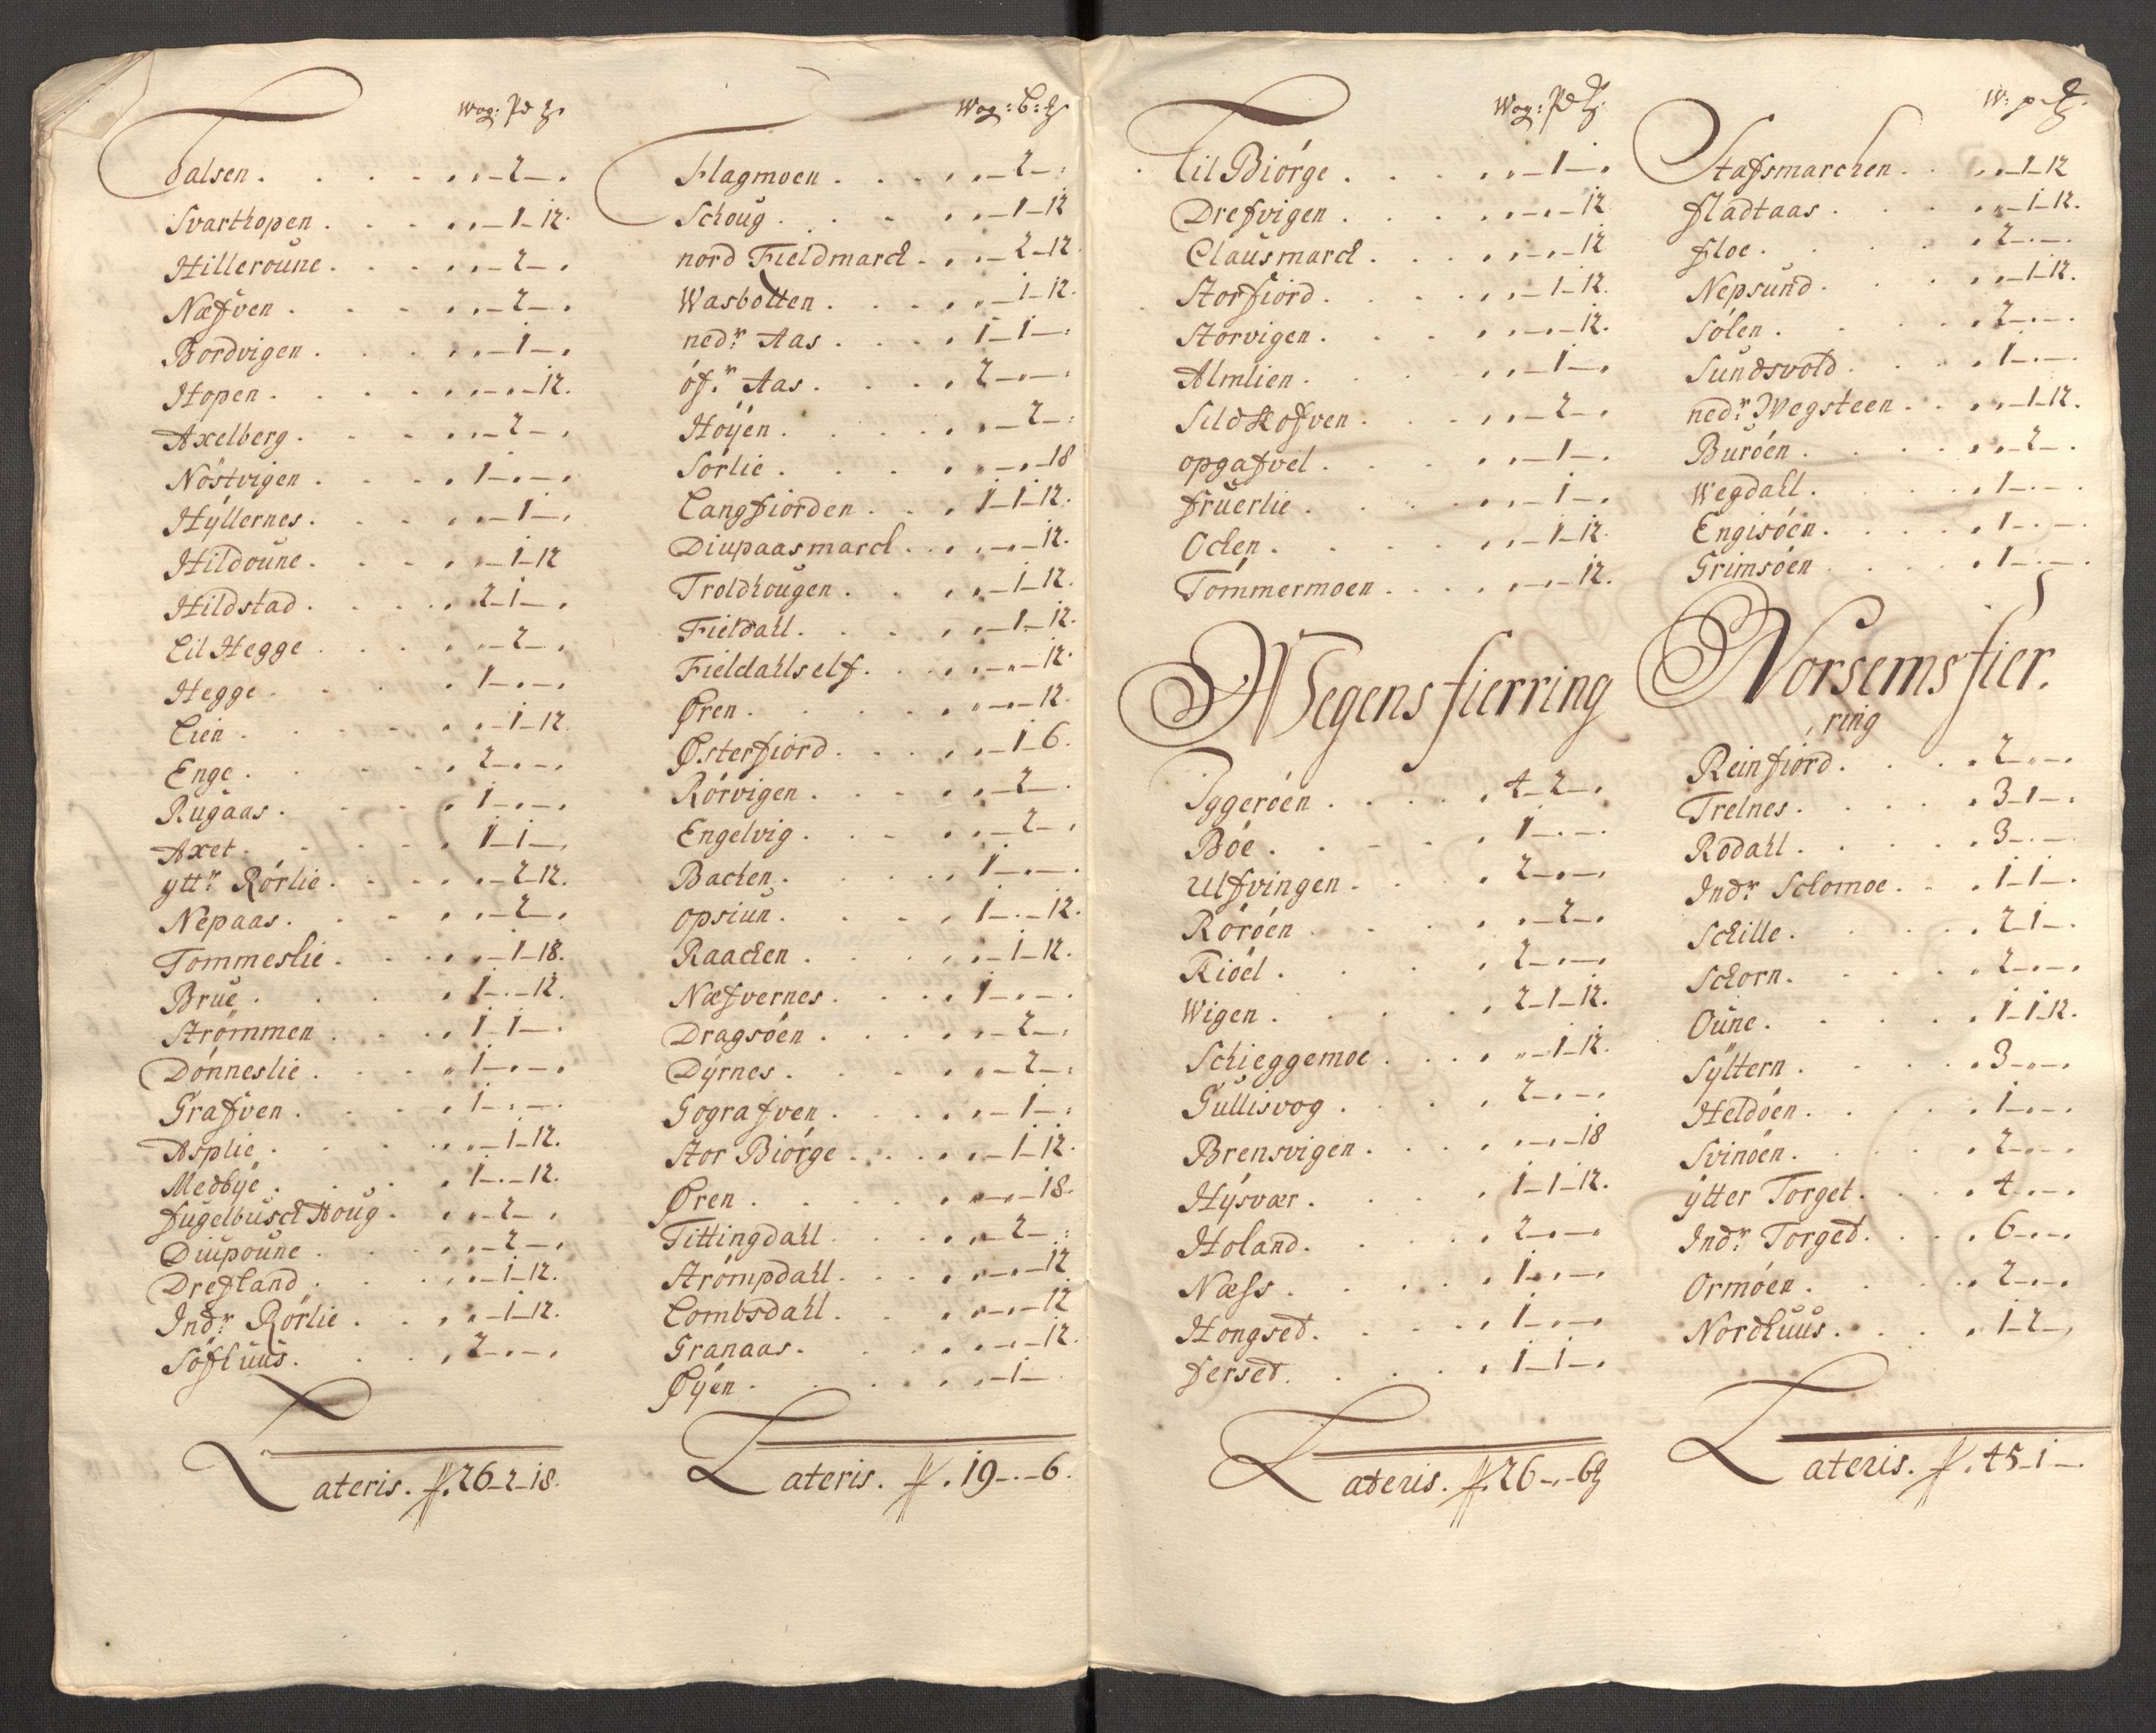 Wog: pd ℔.
Falsen . . . . „–2–„
Svarthopen . . . „–1–12.
Hilleroune . . . „–2–„
Næfven . . . „–2–„
Bordvigen . . . „–1–„
Hopen . . . „–„–12.
Axelberg . . . „–2–„
Nöstvigen . . . 1–„–„
Hÿllernes . . . „–1–„
Hildoune . . . „–1–12
Hildstad . . . 2–1–„
Lil Hegge . . . „–2–„
Hegge . . . 1–„–„
Lien . . . „–1–12.
Enge . . . 2–„–„
Rugaas . . . 1–„–„
Axet . . . 1–1–„
ytt:r Rörlie . . . „–2–12.
Nepaas . . . „–2–„
Tommeslie . . . „–1–18.
Brue . . . 1–„–12.
Strömmen . . . 1–1–„
Dönneslie . . . 1–„–„
Grafven . . . 1–„–„
Asplie . . . „–1–12.
Medbÿe . . . 1–„–12.
fugelbusck Houg . . . „–2–„
Diupoune . . . „–2–„
Drefland . . . „–1–12.
Ind:r Rörlie . . . „–1–12.
Söfhuus . . . 2–„–„
Lateris. 26–2–18.

Wog: b: ℔
Flagmoen . . . „–2–„
Schoug . . . „–1–12
nord Fieldmarck . . . „–2–12.
Wasbotten . . . „–1–12.
ned:r Aas . . . 1–1–„
öf:r Aas . . . 2–„–„
Höÿen . . . „–2–„
Sörlie . . . „–„–18
Langfiorden . . . 1–1–12.
Diupaasmarck . . . „–„–12.
Troldhougen . . . „–1–12.
Fieldall . . . „–1–12.
Fieldahlself . . . „–„–12.
Øren . . . „–„–12.
Østerfiord . . . „–1–6.
Rörvigen . . . „–2–„
Engelvig . . . „–2–„
Backen . . . 1–„–„
opsiun . . . 1–„–12.
Raacken . . . „–1–12.
Næfvernes . . . 1–„–„
Dragsöen . . . „–2–„
Dÿrnes . . . „–2–„
Gografven . . . „–1–„
Stor Biörge . . . „–1–12.
Øren . . . „–„–18.
Tittingdahl . . . „–2–„
Strömpdahl . . . „–„–12
Lombsdahl . . . „–„–12
Granaas . . . „–„–12.
Øÿen . . . „–1–
Lateris. 19–„–6.

Wog: pd ℔.
Lil Biörge . . . „–1–„
Drefvigen . . . „–„–12
Clausmarck . . . „–„–12
Storfiord . . . „–1–12.
Storvigen . . . „–„–12.
Almlien . . . „–1–„
Sildskofven . . . „–2–„
opgafvel . . . „–1–„
fruerlie . . . „–1–„
Oclen . . . „–1–12.
Tömmermoen . . . „–„–12.
Wegens fierring
Iggeröen . . . 4–2–„
Böe . . . 1–„–„
Ulfvingen . . . 2–„–„
Röröen . . . „–2–„
Kiöel . . . 2–„–„
Wigen . . . 2–1–12.
Schieggemoe . . . „–1–12.
Gullisvog . . . 2–„–„
Brensvigen . . . „–„–18
Hÿsvær . . . 1–1–12.
Holand . . . 2–„–„
Næss . . . 1–„–„
Hongsed . . . 1–„–„
ferset . . . 1–1–„
Lateris. 26–„–6 ℔

W: p ℔.
Stafsmarchen . . . „–1–12
fladtaas . . . „–1–12.
floe . . . 2–„–„
Nepsund . . . „–1–12.
Sölen . . . 2–„–„
Sundsvold . . . 1–„–„
ned:r Wegsteen . . . „–1–12.
Buröen . . . „–2–„
Wegdahl . . . 1–„–„
Engisöen . . . 1–„–„
Grimsöen . . . 1–„–„
Norsems fier.
ring
Reinfiord . . . 2–„–„
Trelnes . . . 3–1–„
Rodahl . . . 3–„–„
Ind:r Schomoe . . . 1–1–„
Schille . . . 2–1–„
Schorn . . . 2–„–„
Oune . . . 1–1–12.
Sÿltern . . . 3–„–„
Heldöen . . . 1–„–„
Svinöen . . . 2–„–„
ÿtter Torget . . . 4–„–„
Ind:r Torged . . . 6–„–„
Ormöen . . . 2–„–„
Nordhuus . . . 1–2–„
Lateris. 45–1–„